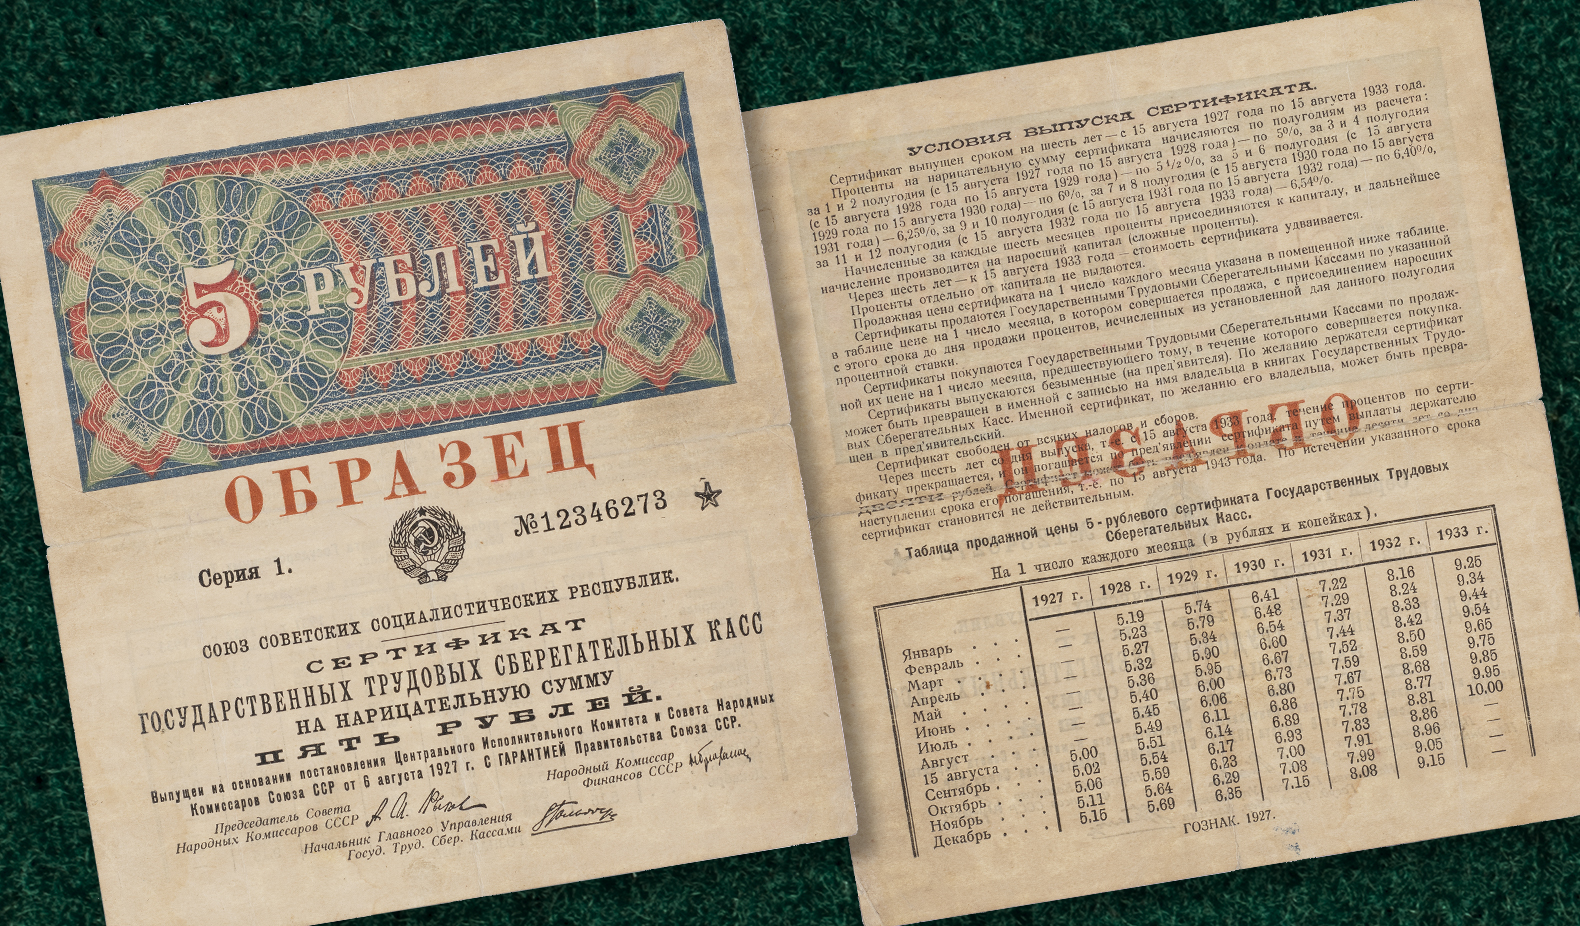 5 РУБЛЕЙ
ОБРАЗЕЦ
№12346273
Серия 1.
СОЮЗ СОВЕТСКИХ СОЦИАЛИСТИЧЕСКИХ РЕСПУБЛИК.
СЕРТИФИКАТ
ГОСУДАРСТВЕННЫХ ТРУДОВЫХ СБЕРЕГАТЕЛЬНЫХ КАСС
НА НАРИЦАТЕЛЬНУЮ СУММУ
ПЯТЬ РУБЛЕЙ.
Выпущен на основании постановления Центрального Исполнительного Комитета и Совета Народных
Комиссаров Союза ССР от 6 августа 1927 г. С ГАРАНТИЕЙ Правительства Союза ССР.
Председатель Совета
Народных Комиссаров СССР
Народный Комиссар
Финансов СССР
Начальник Главного Управления
Госуд. Труд. Сбер. Кассами
УСЛОВИЯ ВЫПУСКА СЕРТИФИКАТА.
Сертификат выпущен сроком на шесть лет — с 15 августа 1927 года по 15 августа 1933 года.
Проценты на нарицательную сумму сертификата начисляются по полугодиям из расчета:
за 1 и 2 полугодия (с 15 августа 1927 года по 15 августа 1928 года) — по 5%, за 3 и 4 полугодия
(с 15 августа 1928 года по 15 августа 1929 года) — по 5 1/2 %, за 5 и 6 полугодия (с 15 августа
1929 года по 15 августа 1930 года) — по 6%, за 7 и 8 полугодия (с 15 августа 1930 года по 15 августа
1931 года) — 6,25%, за 9 и 10 полугодия (с 15 августа 1931 года по 15 августа 1932 года) — по 6,40%,
за 11 и 12 полугодия (с 15 августа 1932 года по 15 августа 1933 года) — 6,54%.
Начисленные за каждые шесть месяцев проценты присоединяются к капиталу, и дальнейшее
начисление производится на наросший капитал (сложные проценты).
Через шесть лет — к 15 августа 1933 года — стоимость сертификата удваивается.
Проценты отдельно от капитала не выдаются.
Продажная цена сертификата на 1 число каждого месяца указана в помещенной ниже таблице.
Сертификаты продаются Государственными Трудовыми Сберегательными Кассами по указанной
в таблице цене на 1 число месяца, в котором совершается продажа, с присоединением наросших
с этого срока до дня продажи процентов, исчисленных из установленной для данного полугодия
процентной ставки.
Сертификаты покупаются Государственными Трудовыми Сберегательными Кассами по продаж-
ной их цене на 1 число месяца, предшествующего тому, в течение которого совершается покупка.
Сертификаты выпускаются безыменные (на пред'явителя). По желанию держателя сертификат
может быть превращен в именной с записью на имя владельца в книгах Государственных Трудо-
вых Сберегательных Касс. Именной сертификат, по желанию его владельца, может быть превра-
щен в пред'явительский.
Сертификат свободен от всяких налогов и сборов.
Через шесть лет со дня выпуска, т.-е. с 15 августа 1933 года, течение процентов по серти-
фикату прекращается, и он погашается по пред'явлении сертификата путем выплаты держателю
ДЕСЯТИ рублей. Сертификат может быть пред'явлен в течение десяти лет со дня
наступления срока его погашения, т.-е. по 15 августа 1943 года. По истечении указанного срока
сертификат становится не действительным.
ОБРАЗЕЦ
Таблица продажной цены 5-рублевого сертификата Государственных Трудовых
Сберегательных Касс.
На 1 число каждого месяца (в рублях и копейках).
1927 г. 1928 г. 1929 г. 1930 г. 1931 г. 1932 г. 1933 г.
Январь . . . — 5.19 5.74 6.41 7.22 8.16 9.25
Февраль . . . — 5.23 5.79 6.48 7.29 8.24 9.34
Март . . . — 5.27 5.84 6.54 7.37 8.33 9.44
Апрель . . . — 5.32 5.90 6.60 7.44 8.42 9.54
Май . . . — 5.36 5.95 6.67 7.52 8.50 9.65
Июнь . . . — 5.40 6.00 6.73 7.59 8.59 9.75
Июль . . . — 5.45 6.06 6.80 7.67 8.68 9.85
Август . . . — 5.49 6.11 6.86 7.75 8.77 9.95
15 августа . . 5.00 5.51 6.14 6.89 7.78 8.81 10.00
Сентябрь . . . 5.02 5.54 6.17 6.93 7.83 8.86 —
Октябрь . . . 5.06 5.59 6.23 7.00 7.91 8.96 —
Ноябрь . . . 5.11 5.64 6.29 7.08 7.99 9.05 —
Декабрь . . . 5.15 5.69 6.35 7.15 8.08 9.15 —
ГОЗНАК. 1927.